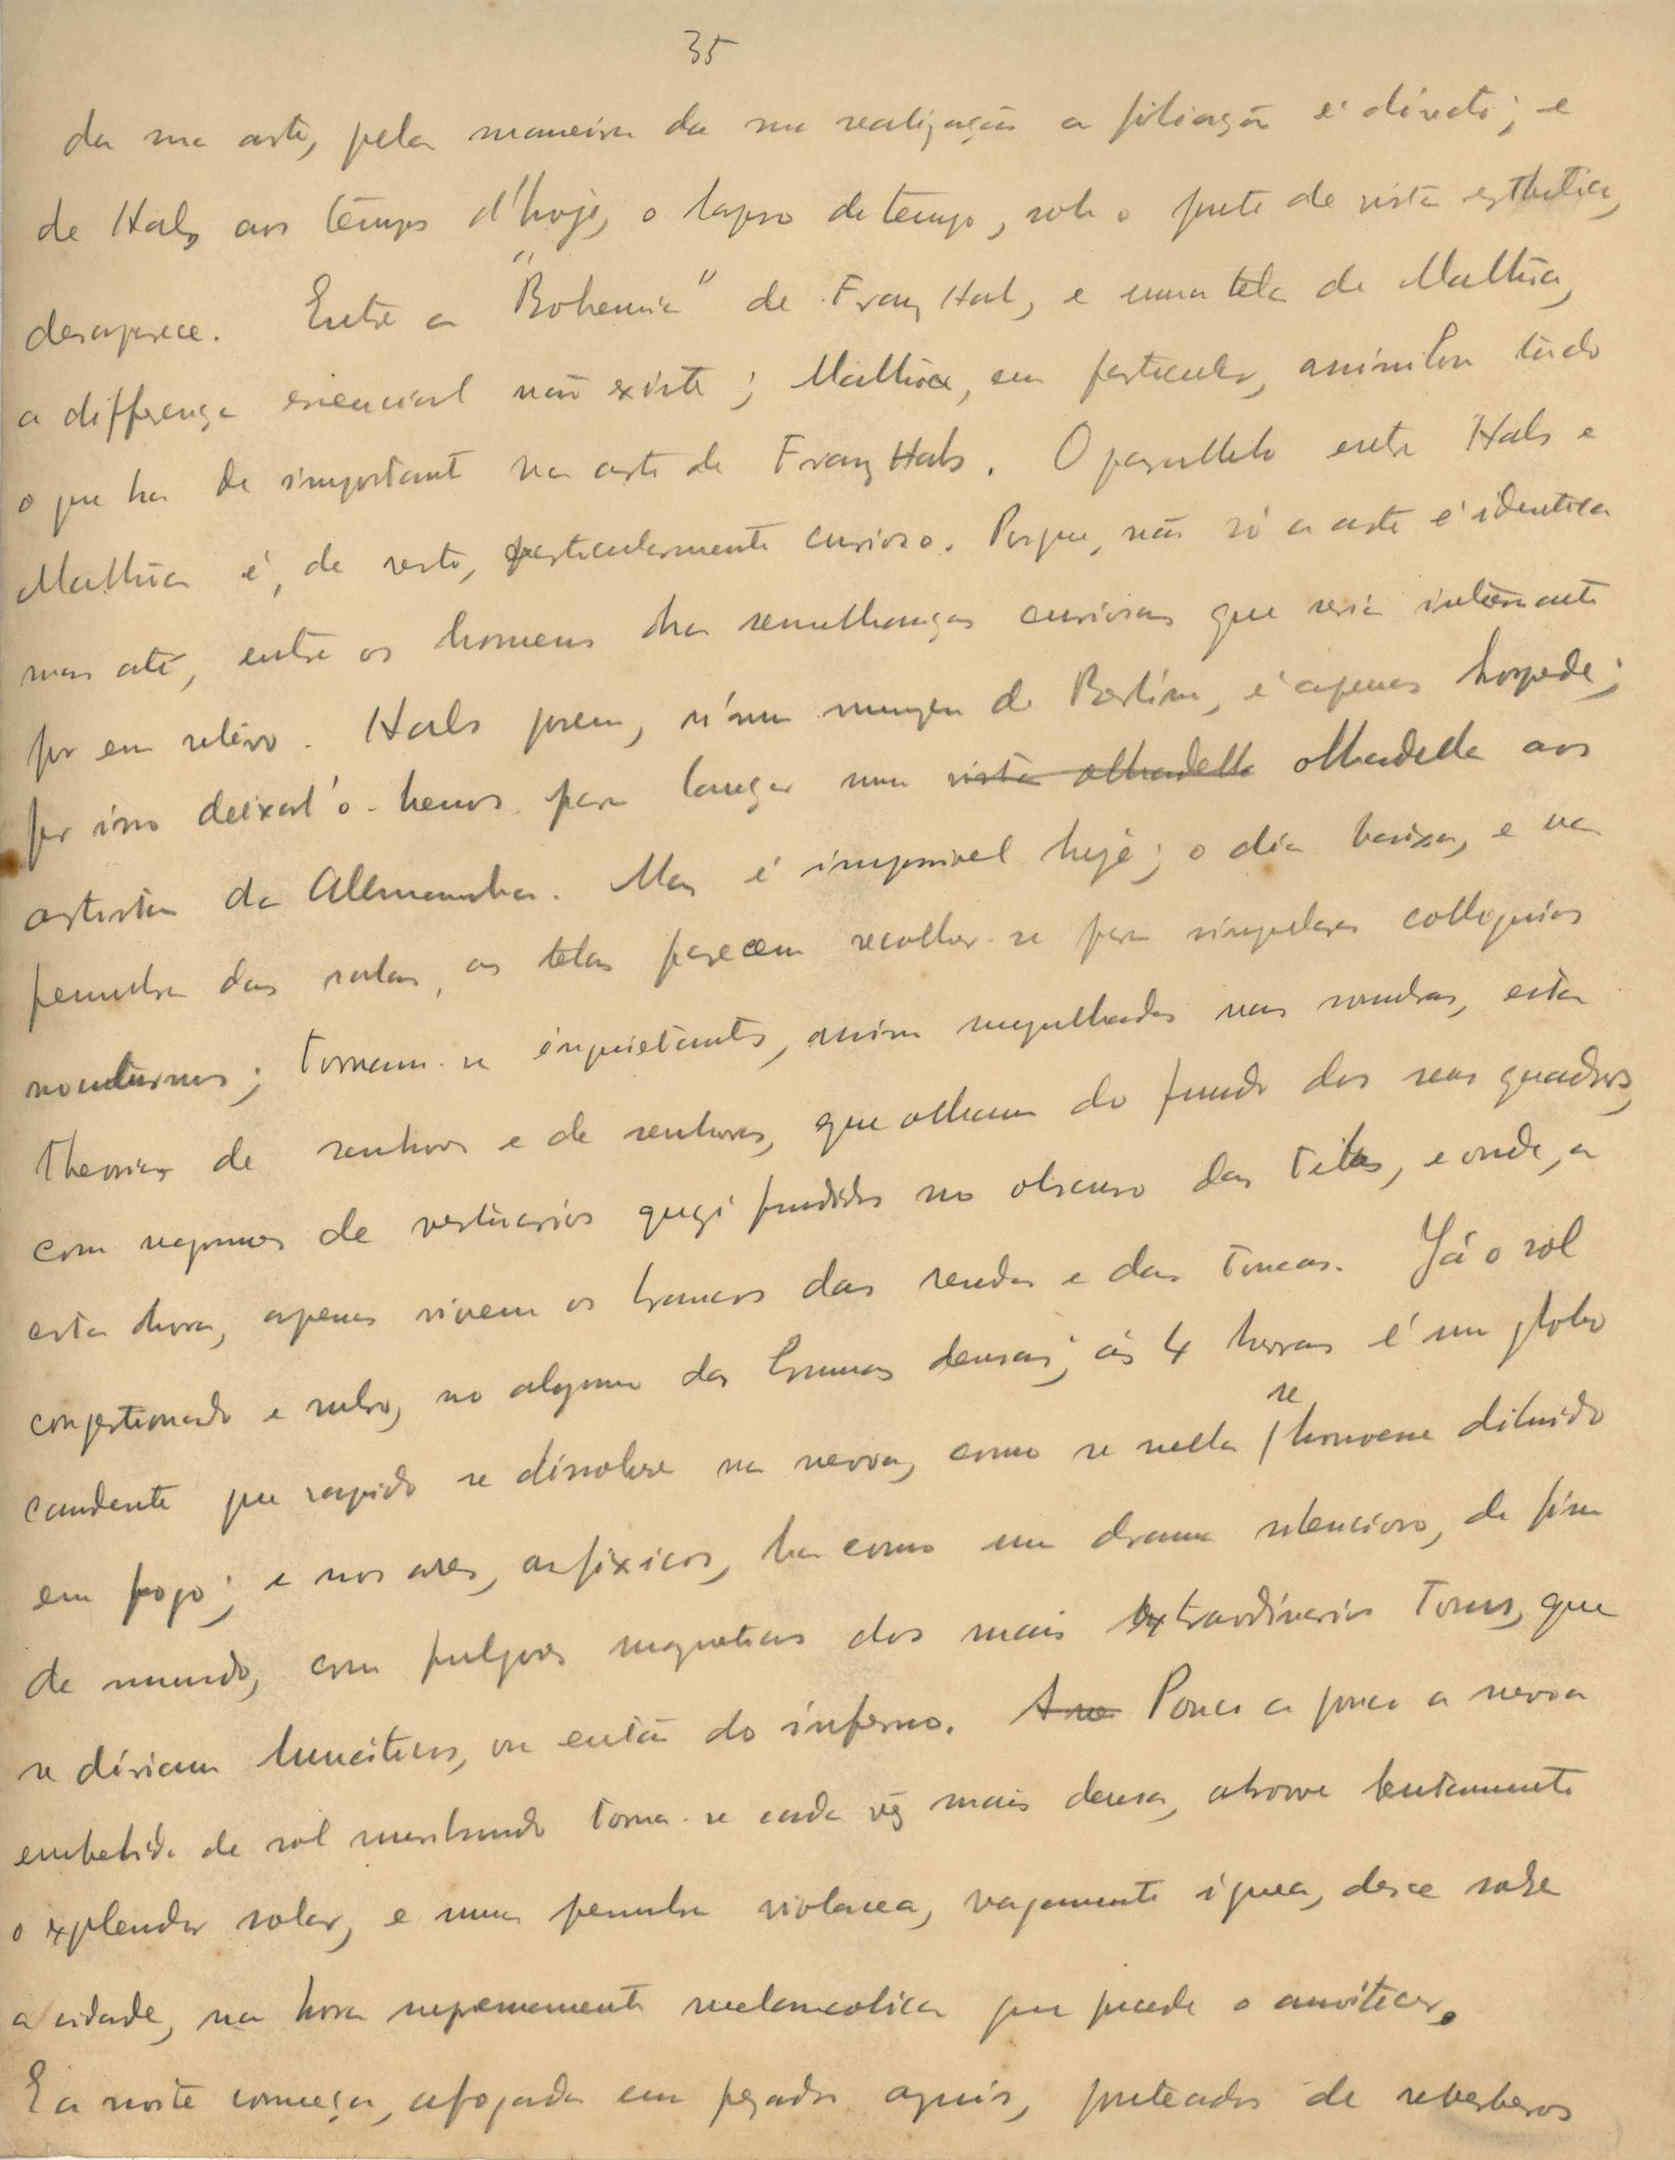 35
da sua arte, pela maneira da sua realização a filiação é directa; e
de Hals aos tempos d'hoje, o lapso de tempo, sob o ponto de vista esthetico,
desaparece. Entre a "Bohemia" de Franz Hals, e uma tela de Malhôa,
a differença essencial não existe; Malhôa, em particular, assimilou tudo
o que ha de importante na arte de Franz Hals. O parallelo entre Hals e
Malhôa é, de resto, particularmente curioso. Porque, não só a arte é identica
mas até, entre os homens ha semelhanças curiosas que seria interessante
por em relêvo. Hals porem, n'um museu de Berlim, é apenas hospede;
por isso deixal'o-hemos para lançar uma vista olhadella olhadella aos
artistas da Allemanha. Mas é impossivel hoje; o dia baixa, e na
penumbra das salas, as telas parecem recolher-se para singulares colloquios
nocturnos; tornam-se inquietantes, assim mergulhadas nas sombras, estas
theorias de senhores e de senhoras, que olham do fundo dos seus quadros,
com roupas de vestuarios quazi fundidos no obscuro das telas, e onde, a
esta hora, apenas vivem os brancos das rendas e das toucas. Já o sol
congestionado e rubro, no algume das brumas densas; ás 4 horas é um globo
candente que rapido se dissolve na nevoa, como se nella se houvesse diluido
em fogo; e nos ares, asfixicos, ha como um drama silencioso, de fim
de mundo, com fulgores magneticos dos mais extraordinarios tons, que
se diriam lunáticos, ou então do inferno. A no Pouco a pouco a nevoa
embebida de sol moribundo torna-se cada vez mais densa, absorve lentamente
o explendor solar, e uma penumbra violacea, vagamente ignea, desce sobre
a cidade, na hora supremamente melancolica que precede o anoitecer.
E a noite começa, afogada em pezados aguis, ponteados de reverberos